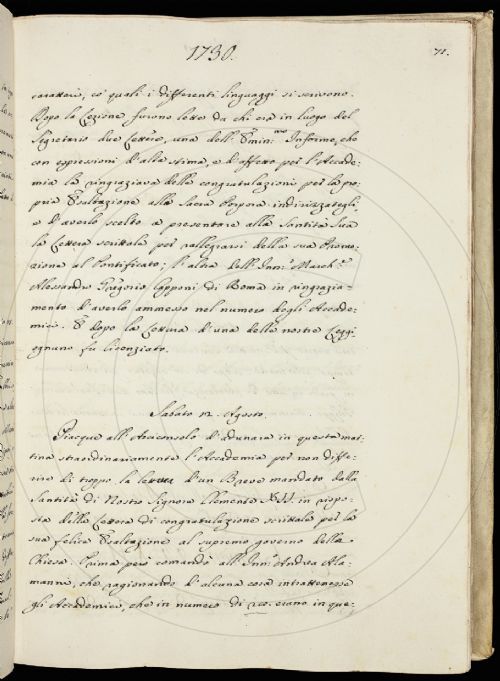 1730. 71.
caratteri, co' quali i differenti linguaggi si scrivono.
Dopo la Lezione furono lette da chi era in luogo del
Segretario due Lettere, una dell' Emin.mo Infome, che
con espressioni d'alta stima, e d'affetto per l'Accade-
mia la ringraziava della congratulazioni per la pro-
pria Esaltazione alla Sacra Porpora indirizzategli,
e d'averlo scelto a presentare alla Santità Sua
la Lettera scrittale per rallegrarsi della sua Promo-
zione al Pontificato; l'altra dell' Marchese
Alessandro Gregorio Capponi di Roma in ringrazia-
mento d'averlo ammesso nel numero degli Accade-
mici. E dopo la Lettura d'una delle nostre Leggi
ognuno fu licenziato.
Sabato 12. Agosto.
Piacque all' Arciconsolo d'adunare in questa mat-
tina straordinariamente l'Accademia per non diffe-
rire di troppo la lettura d'un Breve mandato dalla
Santità di Nostro Signore Clemente XII. in rispo-
sta della Lettera di congratulazione scrittale per la
sua felice Esaltazione al supremo governo della
Chiesa. Prima però comandò all' Andrea Ala-
manni, che ragionando d'alcuna cosa intrattenesse
gli Accademici, che in numero di erano in que-